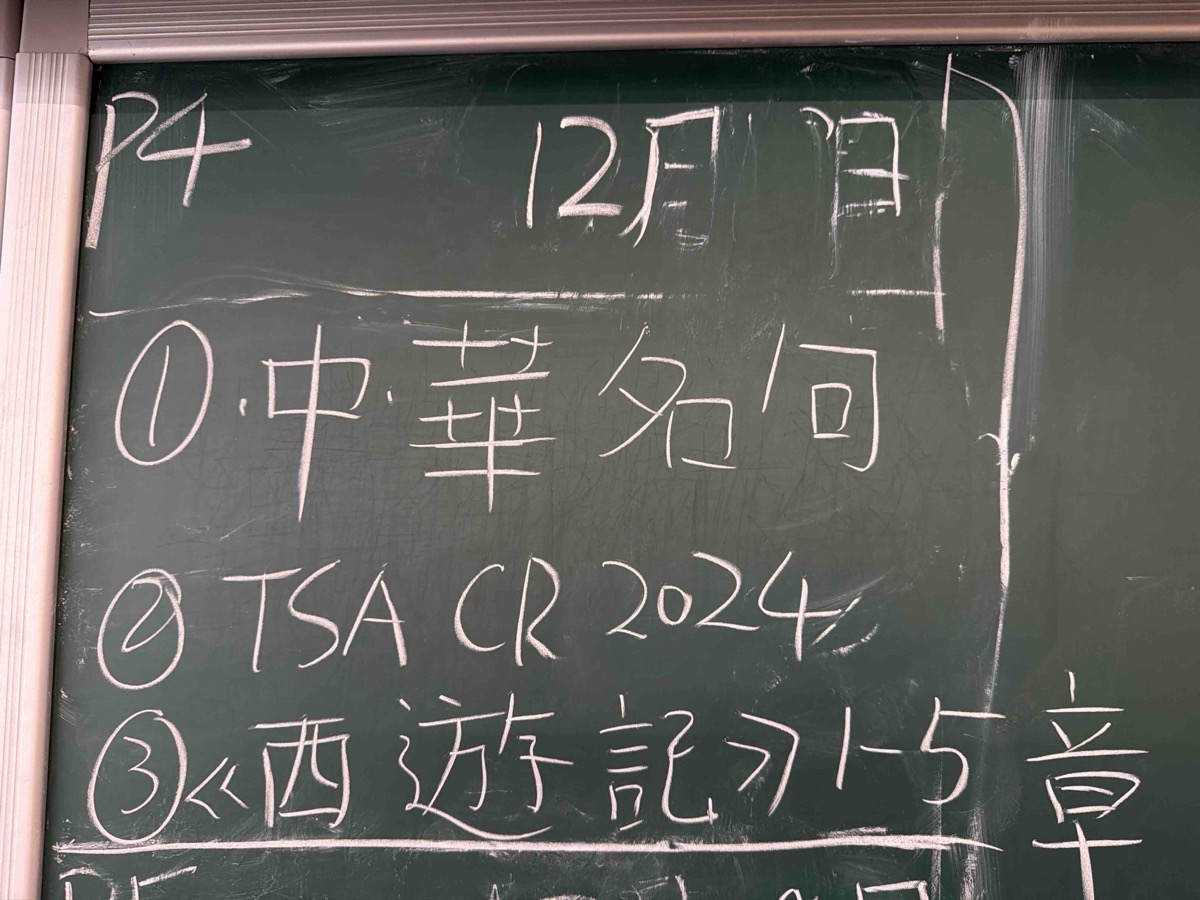 P4 12月 日
① 中華名句
② TSA CR 2024
③ 《西遊記》 1-5章